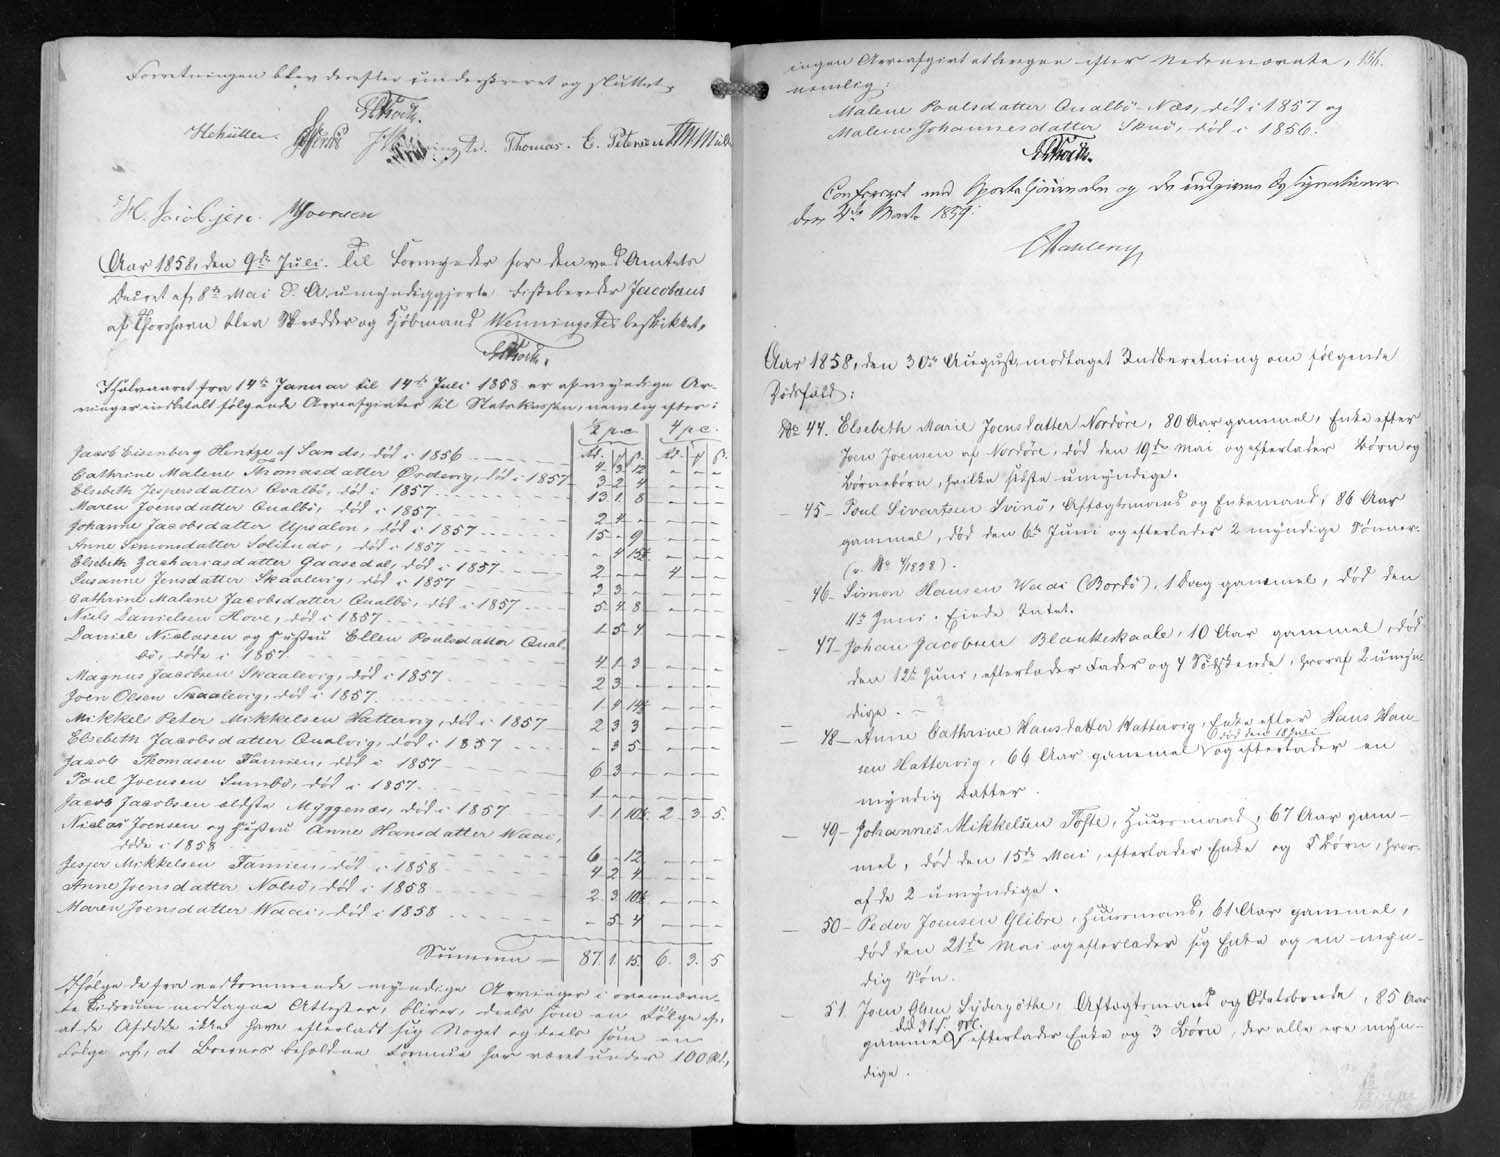 Forretningen blev derefter underskrevet og sluttet.
HMüller. Thomas. E. Petersen
H. Jacobsen. Joensen
Aar 1858, den 9de Juli. Til Formynder for den ved Amtets
Decret af 8de Mai d. A. umyndiggjorte Fiskebereder Jacobæus
af Thorshavn blev Skrædder og Kjøbmand Wenningsted beskikket.
I Halvaaret fra 14de Januar til 14de Juli 1858 er af myndige Ar-
vinger indbetalt følgende Arveafgivter til Statskassen, nemlig efter:
½ p.c. 4 p.c.
Rd. ß. Rd. ß.
Jacob Eisenberg Hentze af Sands, død i 1856 4. 3. 12 - - -
Cathrine Malene Thomasdatter Ørdevig, død i 1857 3 - 2 4 - - -
Elsebeth Jespersdatter Qvalbø, død i 1857 13. 1. 8 - - -
Maren Joensdatter Qvalbø, død i 1857. 2 4 - - - -
Johanne Jacobsdatter Upsalon, død i 1857 15 - 9 - - -
Anne Simonsdatter Solitudo, død i 1857 - 4 15½ - - -
Elsebeth Zachariasdatter Gaasedal, død i 1857 2 - - 4 - -
Susanne Jensdatter Skaalevig, død i 1857 2 3 - - - -
Cathrine Malene Jacobsdatter Qvalbø, død i 1857 5 4 8 - - -
Niels Danielsen Hove, død i 1857 1 5 4 - - -
Daniel Niclasen og Hustru Ellen Poulsdatter Qval-
bø, døde i 1857 4 1 3 - - -
Magnus Jacobsen Skaalevig, død i 1857 2 3 - - - -
Joen Olsen Skaalevig, død i 1857 1 4 14½ - - -
Mikkel Peter Mikkelsen Hattervig, død i 1857 2 3 3 - - -
Elsebeth Jacobsdatter Qvalvig, død i 1857 - 3 5 - - -
Jacob Thomasen Famien, død i 1857 6 3 - - - -
Poul Joensen Sumbø, død i 1857. 1 - - - - -
Jacob Jacobsen ældste Myggenæs, død i 1857 1 1 10½ 2 3 5.
Niclas Joensen og Hustru Anne Hansdatter Waai,
døde i 1858 6 - 12 - - -
Jesper Mikkelsen Famien, død i 1858 4 2 4 - - -
Anne Joensdatter Nolsø, død i 1858 2 3 10½ - - -
Maren Joensdatter Waai, død i 1858 - 5 4 - - -
Summa 87. 1. 15. 6. 3. 5
Ifølge de fra vedkommende myndige Arvinger i ovennævn-
te Tidsrum modtagne Attester, bliver, deels som en Følge af,
at de Afdøde ikke have efterladt sig Noget og deels som en
Følge af, at Boernes beholdne Formue har været under 100 Rd.,
ingen Arveafgivt at beregne efter Nedennævnte, 136.
nemlig:
Malene Poulsdatter Qvalbø-Næs, død i 1857 og
Malene Johannesdatter Skuø, død i 1856.
Confereret med Sporteljournalen og de indgivne Designationer
den 2de Marts 1859.
Dahlerup
Aar 1858, den 30te August, modtaget Indberetning om følgende
Dødsfald:
No 44. Elsebeth Marie Joensdatter Nordøre, 80 Aar gammel, Enke efter
Joen Joensen af Nordøre, død den 19de Mai og efterlader Børn og
Børnebørn, hvilke sidste umyndige.
- 45 - Poul Sivertsen Svinø, Aftægtsmand og Enkemand, 86 Aar
gammel, død den 6te Juni og efterlader 2 myndige Sønner.
(v. No 4/1858).
46 - Simon Hansen Waai (Bordø), 1 Dag gammel, død den
11te Juni. Eiede Intet.
- 47 - Johan Jacobsen Blankeskaale, 10 Aar gammel, død
den 12te Juni, efterlader Fader og 4 Sødskende, hvoraf 2 umyn-
dige. - ?
- 48 - Anne Cathrine Hansdatter Hattervig, Enke efter Hans Han-
sen Hattervig, 66 Aar gammel, død den 18 Juli og efterlader en
myndig Datter.
- 49 - Johannes Mikkelsen Tofte, Huusmand, 67 Aar gam-
mel, død den 15de Mai, efterlader Enke og 5 Børn, hvor-
af de 2 umyndige.
- 50 - Peder Joensen Glibre, Huusmand, 61 Aar gammel,
død den 21de Mai og efterlader sig Enke og en myn-
dig Søn.
- 51. Joen Olsen Sydergøthe, Aftægtsmand og Odelsbonde, 85 Aar
gammel, efterlader Enke og 3 Børn, der alle ere myn-
dige.